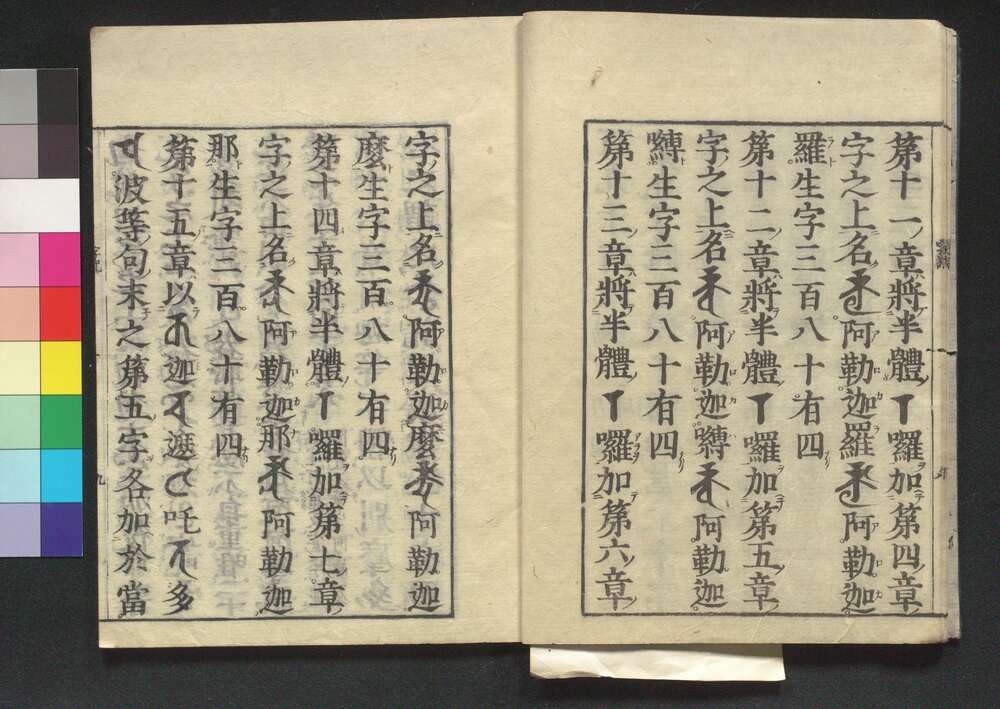 第十一章將半體囉加第四章
字之上名阿勒迦羅阿勒迦
羅生字三百八十有四
第十二章將半體囉加第五章
字之上名阿勒迦嚩阿勒迦
嚩生字三百八十有四
第十三章將半體囉加第六章
字之上名阿勒迦麼阿勒迦
麼生字三百八十有四
第十四章將半體囉加第七章
字之上名阿勒迦那阿勒迦
那生字三百八十有四
第十五章以迦遮吒多
波等句末之第五字各加於當